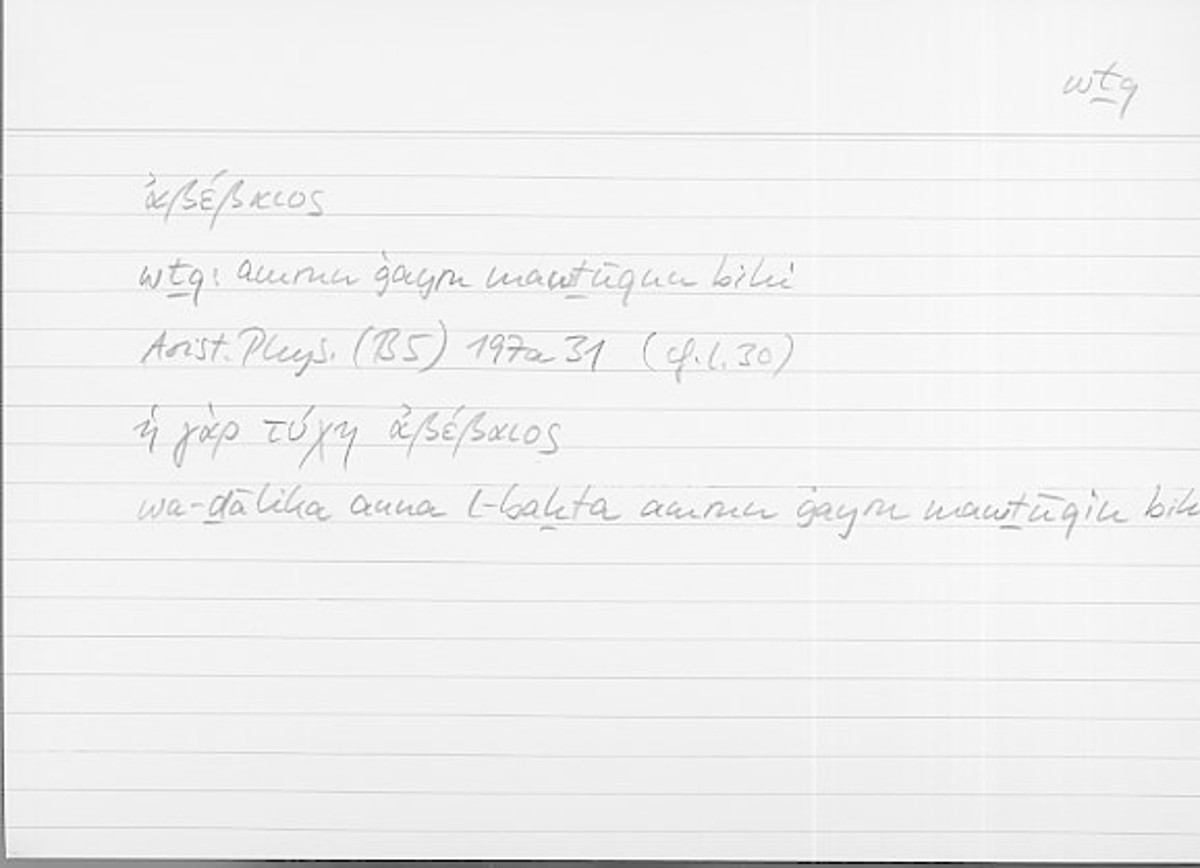 wṯq
ἀβέβαιος
wṯq: amrun ġayru mawṯūqun bihī
Arist. Phys. (B5) 197a31 (cf. l. 30)
ἡ γὰρ τύχη ἀβέβαιος
wa-ḏālika anna l-baḫta amrun ġayru mawṯūqin bih